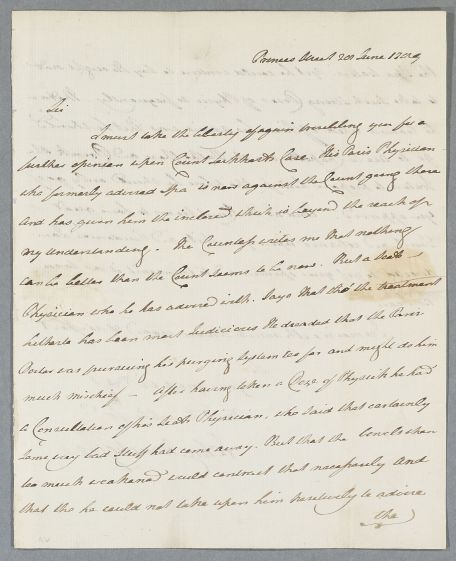 Princes Street 20 June 1789
Sir
I must take the liberty of again troubling you for a
further opinion upon Count Case. His Paris Physician
who formerly advised Spa is now against the Count going there
And has given him the inclosed which is beyond the reach of
my Understanding. The Countess writes me that nothing
can be better than the Count seems to be now. But a
Physician who he has advised with. Says that tho' the treatment
hitherto has been most Judicious He dreaded that the Paris
Doctor was pursuing his purging System too far and might do him
much mischief - After having taken a Doze of Physick he had
a Consultation of his Physician, who said that certainly
some very bad Stuff had come away. But that the bowels
too much weakened would contract that necessarily And
that tho he could not take upon him positively to advise
the